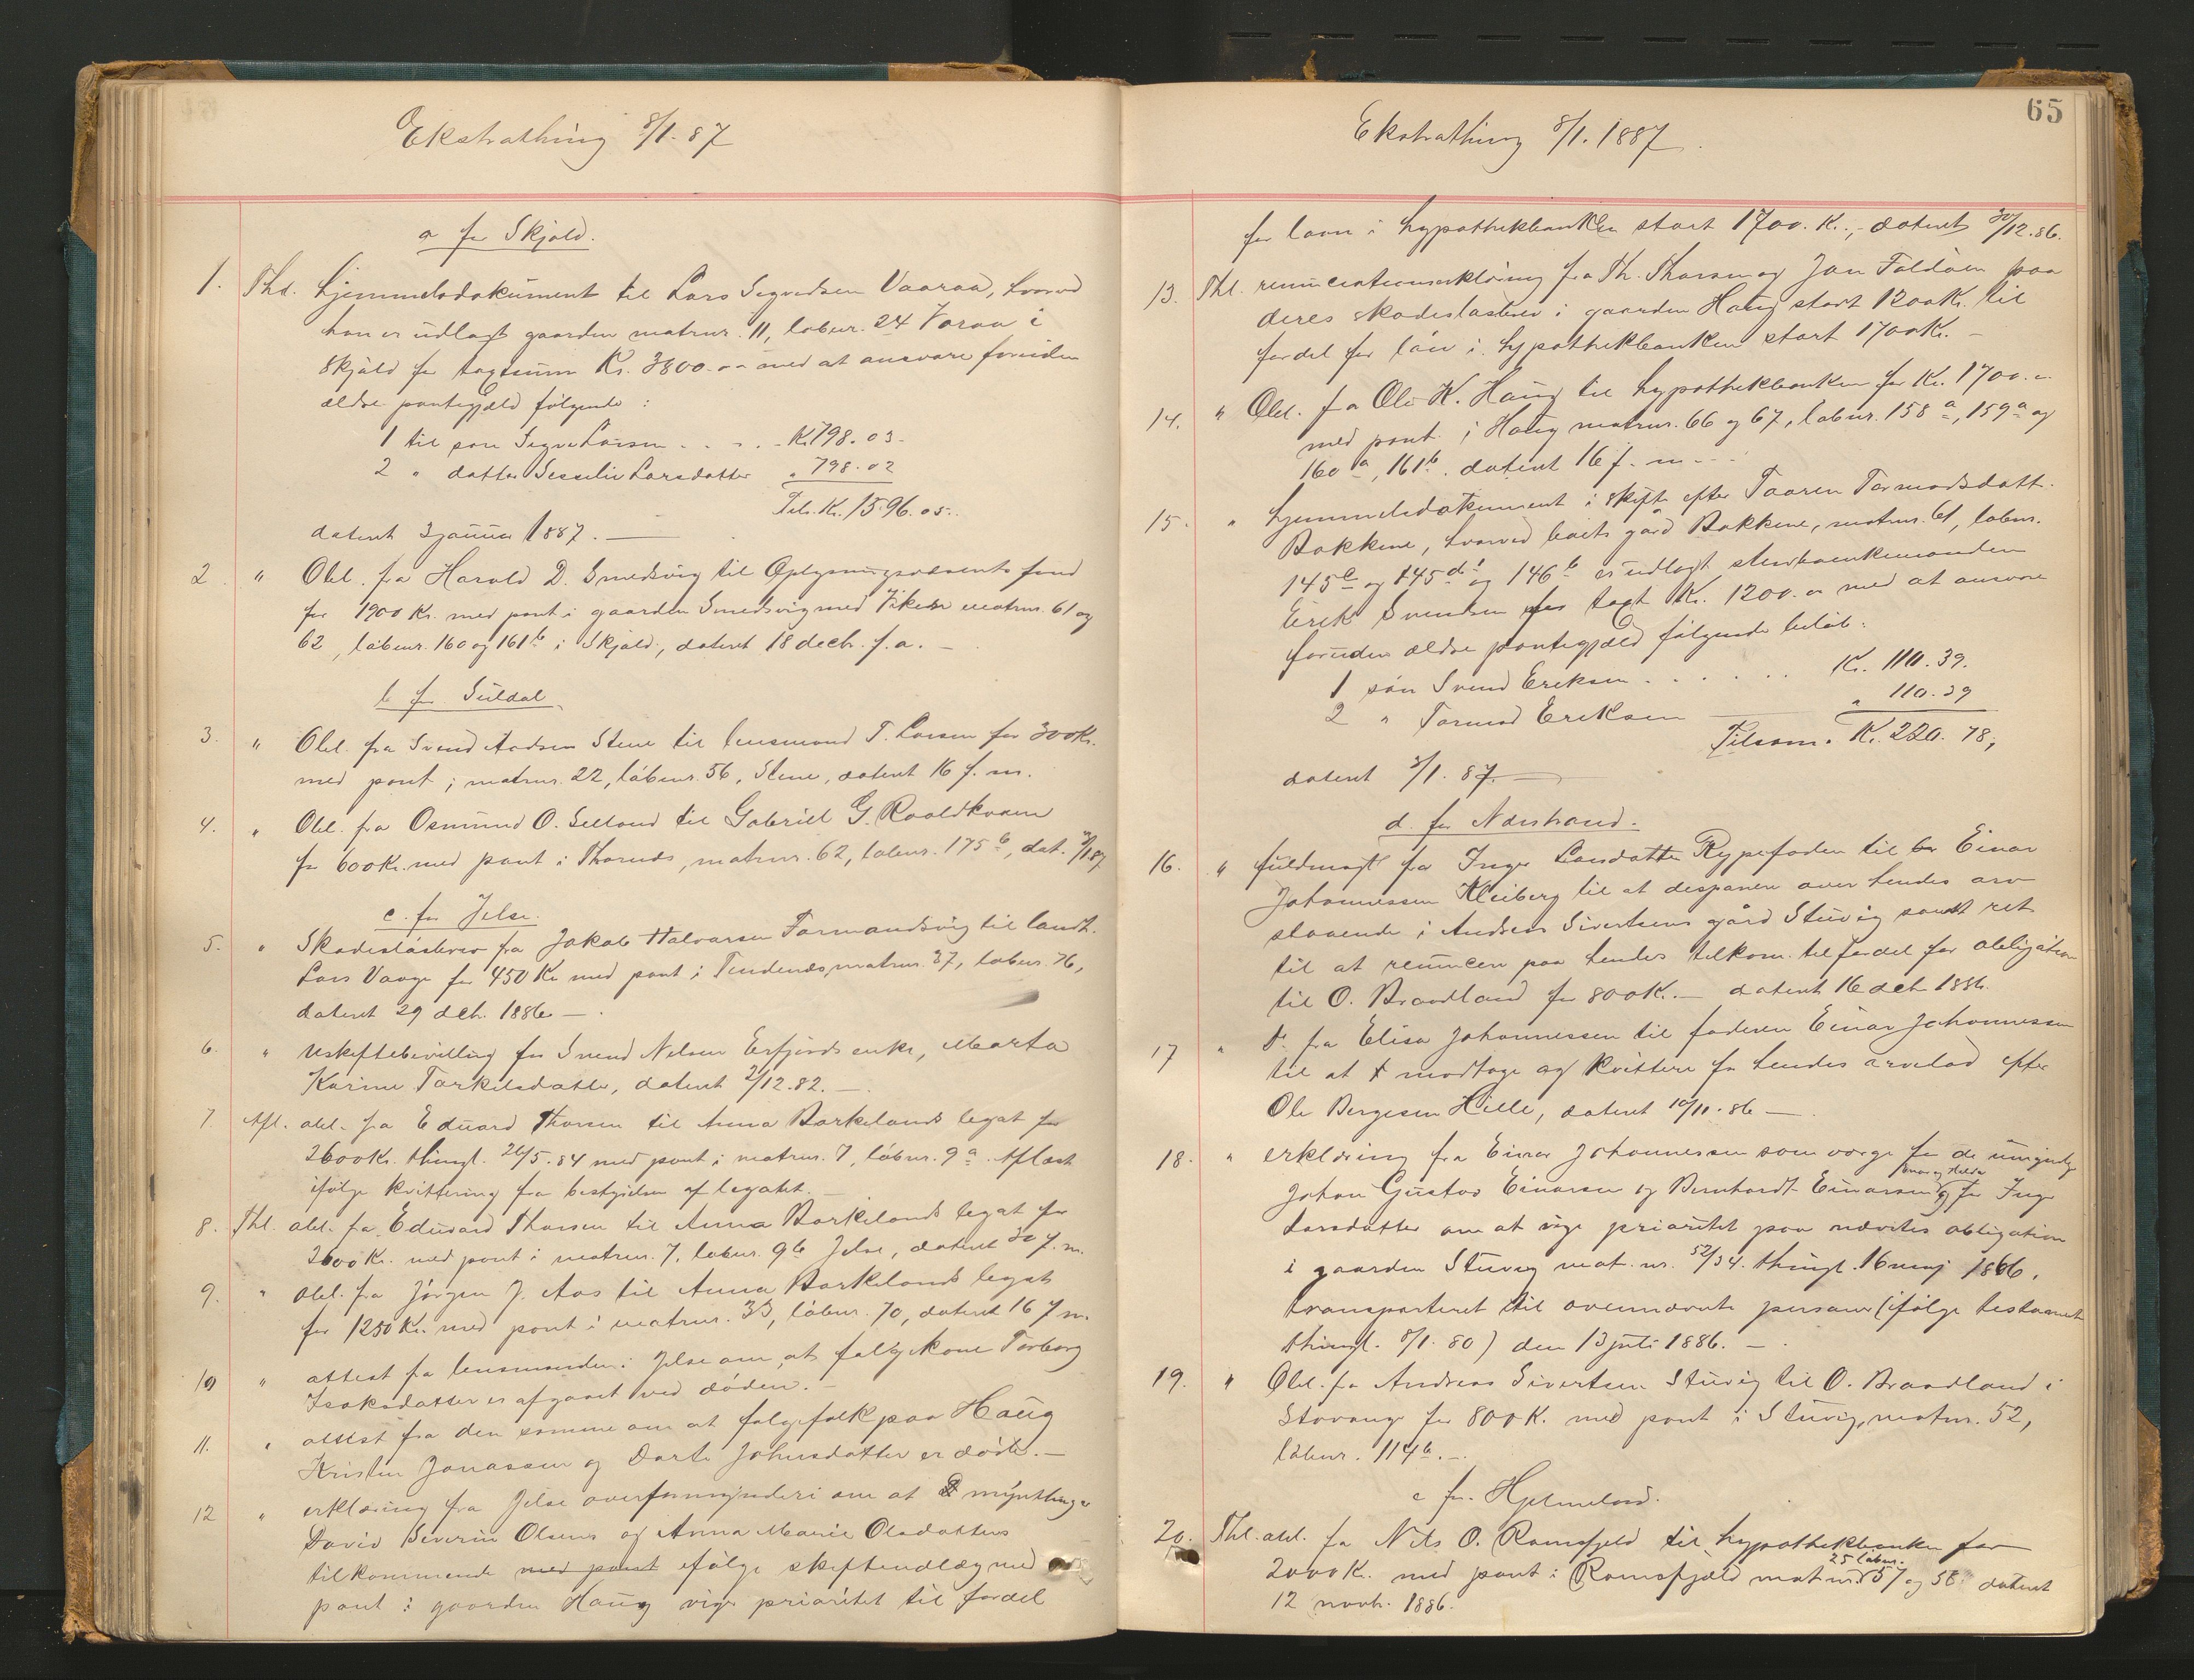 Ekstrathing 8/1. 87
a for Skjold.
1. Thl. hjemmelsdokument til Lars Segvedsen Vaaraa, hvorved
han er udlagt gaarden matrnr. 11, løbnr. 24 Voraa i
Skjold for taxtsum Kr. 3800.00 med at ansvare foruden
ældre pantegjeld følgende:
1 til søn Segve Larsen . . . . Kr. 798. 03.
2 " datter Sessilie Larsdatter " 798. 02
Tils. Kr. 1596. 05.
dateret 3 januar 1887.
2. " Obl. fra Harald D. Smedsvig til Oplysningsvæsents fond
for 1900 Kr. med pant i gaarden Smedsvig med Vikene matrnr. 61 og
62, løbnr. 160 og 161b i Skjold, dateret 18 decbr. f. a.
b for Suldal
3. " Obl. fra Svend Aadsen Stene til lensmand T. Larsen for 300 Kr.
med pant i matrnr. 22, løbnr. 56, Stene, dateret 16 f. m.
4. " Obl. fra Osmund O. Selland til Gabriel G. Roaldkvam
for 600 Kr. med pant i Thornes, matrnr. 62, løbnr. 175b, dat. 3/1 87
c. for Jelse.
5. " Skadesløsbrev fra Jakob Halvorsen Formandsvig til landh.
Lars Vaage for 450 Kr med pant i Tendenes matrnr. 37, løbnr. 76,
dateret 29 dcbr. 1886 —
6. " Uskiftebevilling for Svend Nelsen Erfjords enke, Marta
Karine Torkilsdatter, dateret 2/12. 82. —
7. Afl. obl. fra Eduard Thorsen til Anna Barkelands legat for
2600 Kr. thingl. 26/5. 84 med pant i matrnr. 7, løbnr. 9a. Aflæst
ifølge kvittering fra bestyrelsen af legatet.
8. Thl. obl. fra Eduard Thorsen til Anna Barkelands legat for
2600 Kr. med pant i matrnr. 7, løbnr. 9b Jelse, dateret 30 f. m.
9. " obl. fra Jørgen J. Aas til Anna Barkelands legat
for 1250 Kr. med pant i matrnr. 33, løbnr. 70, dateret 16 f m.
10 " attest fra lensmanden i Jelse om, at følgekone Torborg
Isaksdatter er afgaaet ved døden. —
11. " attest fra den samme om at følgefolk paa Haug
Kristen Jonassen og Dorte Johnsdatter er døde. —
12 " erklæring fra Jelse overformynderi om at myntlinge
David Severin Olsens og Anna Marie Olsdatters
tilkommende med pant ifølge skifteudlæg med
pant i gaarden Haug vige prioritet til fordel
65
Ekstrathing 8/1. 1887.
for laan i hypothekbanken stort 1700. Kr., dateret 30/12. 86.
13. Thl. renunciationserklæring fra Th. Thorsen og Jon Foldøen paa
deres skadesløsbrev i gaarden Haug stort 1200 Kr. til
fordel for lån i hypothekbanken stort 1700 Kr. —
14. " Obl. fra Ole K. Haug til hypothekbanken for Kr. 1700.00
med pant i Haug matrnr. 66 og 67, løbnr. 158a, 159a og
160a, 161b. dateret 16 f. m.
15. " hjemmelsdokument i skifte efter Taaren Tormodsdatt.
Bakkene, hvorved boets gård Bakkene, matrnr. 61, løbnr.
145c og 145d1 og 146b er udlagt stervboenkemanden
Erik Svendsen for taxt Kr. 1200.00 med at ansvare
foruden ældre pantegjæld følgende beløb:
1 søn Svend Eriksen . . . . . . Kr. 110. 39.
2 " Tormod Eriksen " 110. 39
Tilsam. Kr. 220. 78,
dateret 3/1. 87. —
d. for Nærstrand.
16. " fuldmagt fra Inger Larsdatter Rypefoden til Einar
Johannessen Kleiberg til at desponere over hendes arv
staaende i Andreas Sivertsens gård Stuvig samt ret
til at renuncere paa hendes tilkom. til fordel for obligation
til O. Braadland for 800 Kr. — dateret 16 dcbr 1886.
17 " Do fra Elisa Johannessen til faderen Einar Johannessen
til at modtage og kvittere for hendes arvelod efter
Ole Bergesen Hille, dateret 10/11. 86 —
18. " erklæring fra Einar Johannessen som værge for de umyndige
Johan Gustav Einarsen og Bernhardt Einarsen og for Inger
Larsdatter om at vige prioritet paa nævntes obligation
i gaarden Stuvig mat. nr. 52/54. thingl. 16 maj 1866,
transporteret til ovennævnte personer (ifølge testament
thingl. 8/1. 80) den 13 juli 1886. —
19. " Obl. fra Andreas Sivertsen Stuvig til O. Braadland i
Stavanger for 800 K. med pant i Stuvig, matrnr. 52,
løbnr. 114b. —
e for. Hjelmeland.
20. Thl. obl. fra Nils O. Ramsfjeld til hypothekbanken for
2000 K. med pant i Ramsfjeld matrnr. 25 løbnr. 57 og 58 dateret
12 novbr. 1886.